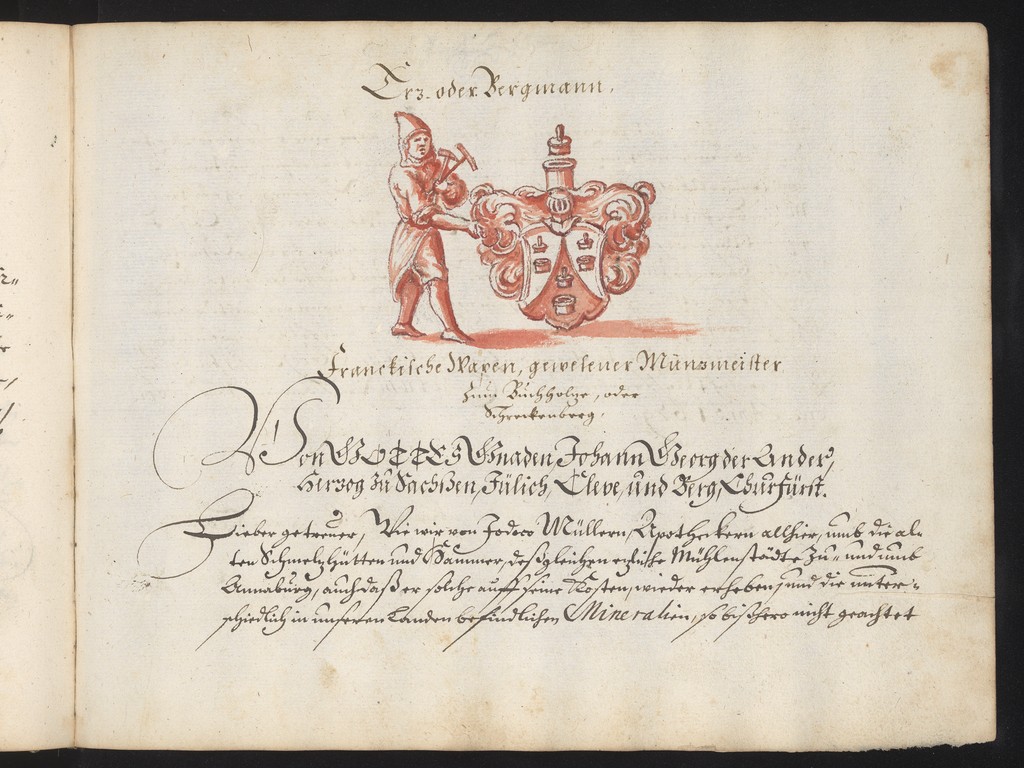 Erz- oder Bergmann.
Franckische Wapen, gewesener Müntzmeister
zum Buchholtze, oder
Schreckenberg.
Von GOTTES Gnaden, Johann Georg der Ander,
Herzog zu Sachßen, Jülich, Cleve, und Berg, Churfürst.
Lieber getreuer, Wie wir von Jodoco Müllern, Apotheckern allhier, umb die al-
ten Schmelzhütten und Hammer, desgleichen etliche Mühlenstädte zu- und umb
Annaburg, auch daß er solche auff seine Kosten, wieder erheben, und die unter-
schiedlich in unseren Landen befindlichen Mineralien, so bißhero nicht geachtet